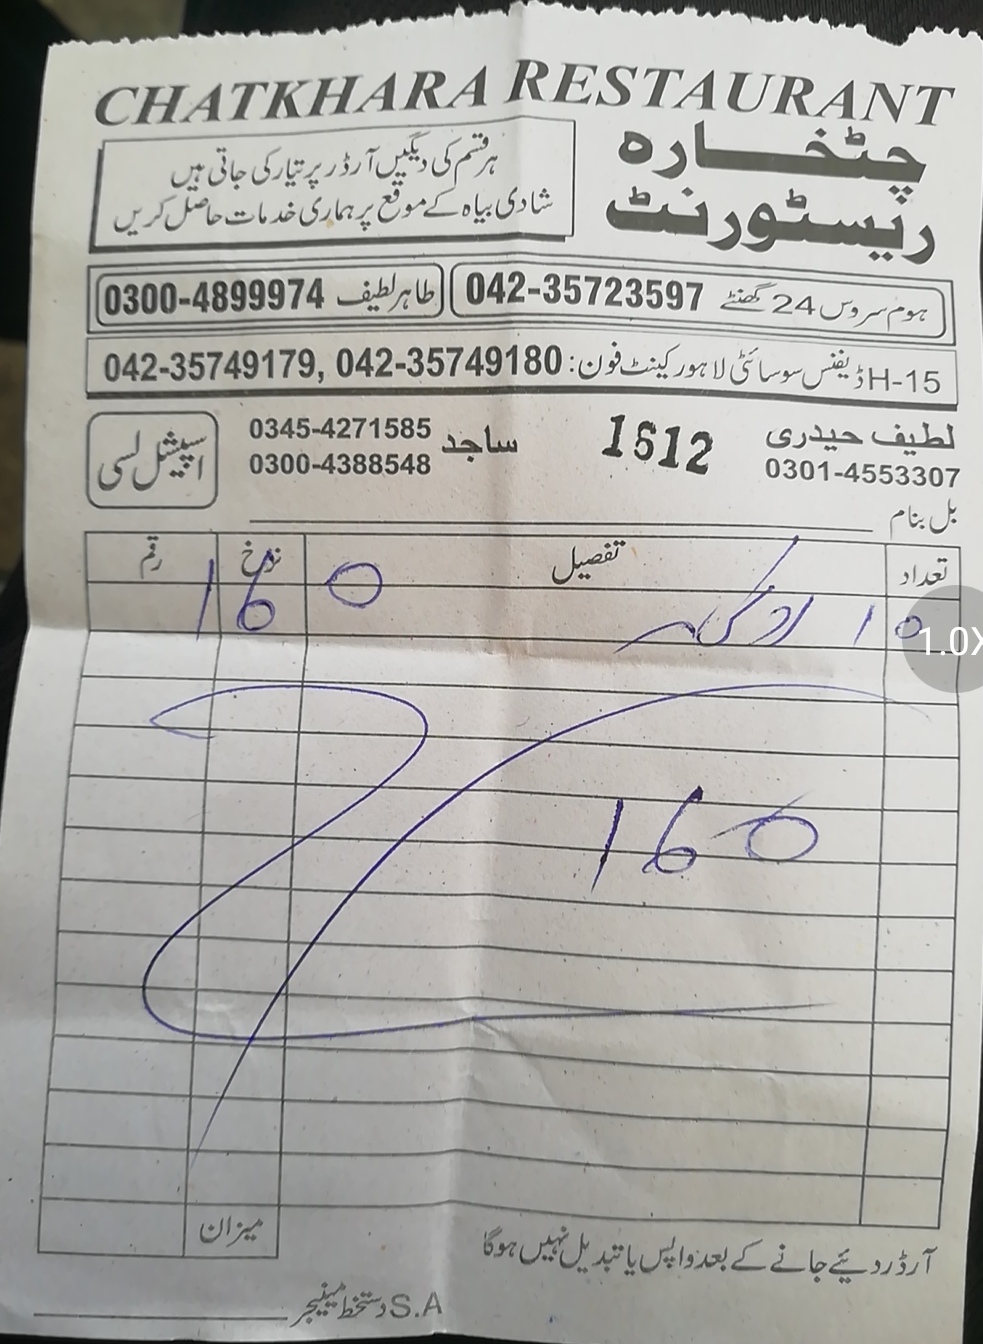 CHATKHARA RESTAURANT
چٹخارہ
ریسٹورنٹ
ہر قسم کی دیگیں آرڈر پر تیار کی جاتی ہیں
شادی بیاہ کے موقع پر ہماری خدمات حاصل کریں
ہوم سروس 24 گھنٹے 042-35723597
طاہر لطیف 0300-4899974
H-15 ڈیفنس سوسائٹی لاہور کینٹ فون: 042-35749180 ,042-35749179
لطیف حیدری
0301-4553307
1612
ساجد 0345-4271585
0300-4388548
اسپیشل لسی
بل بنام
تعداد تفصیل نرخ رقم
10 160
160
میزان
آرڈر دیئے جانے کے بعد واپس یا تبدیل نہیں ہوگا
S.A دستخط مینیجر
1.0X